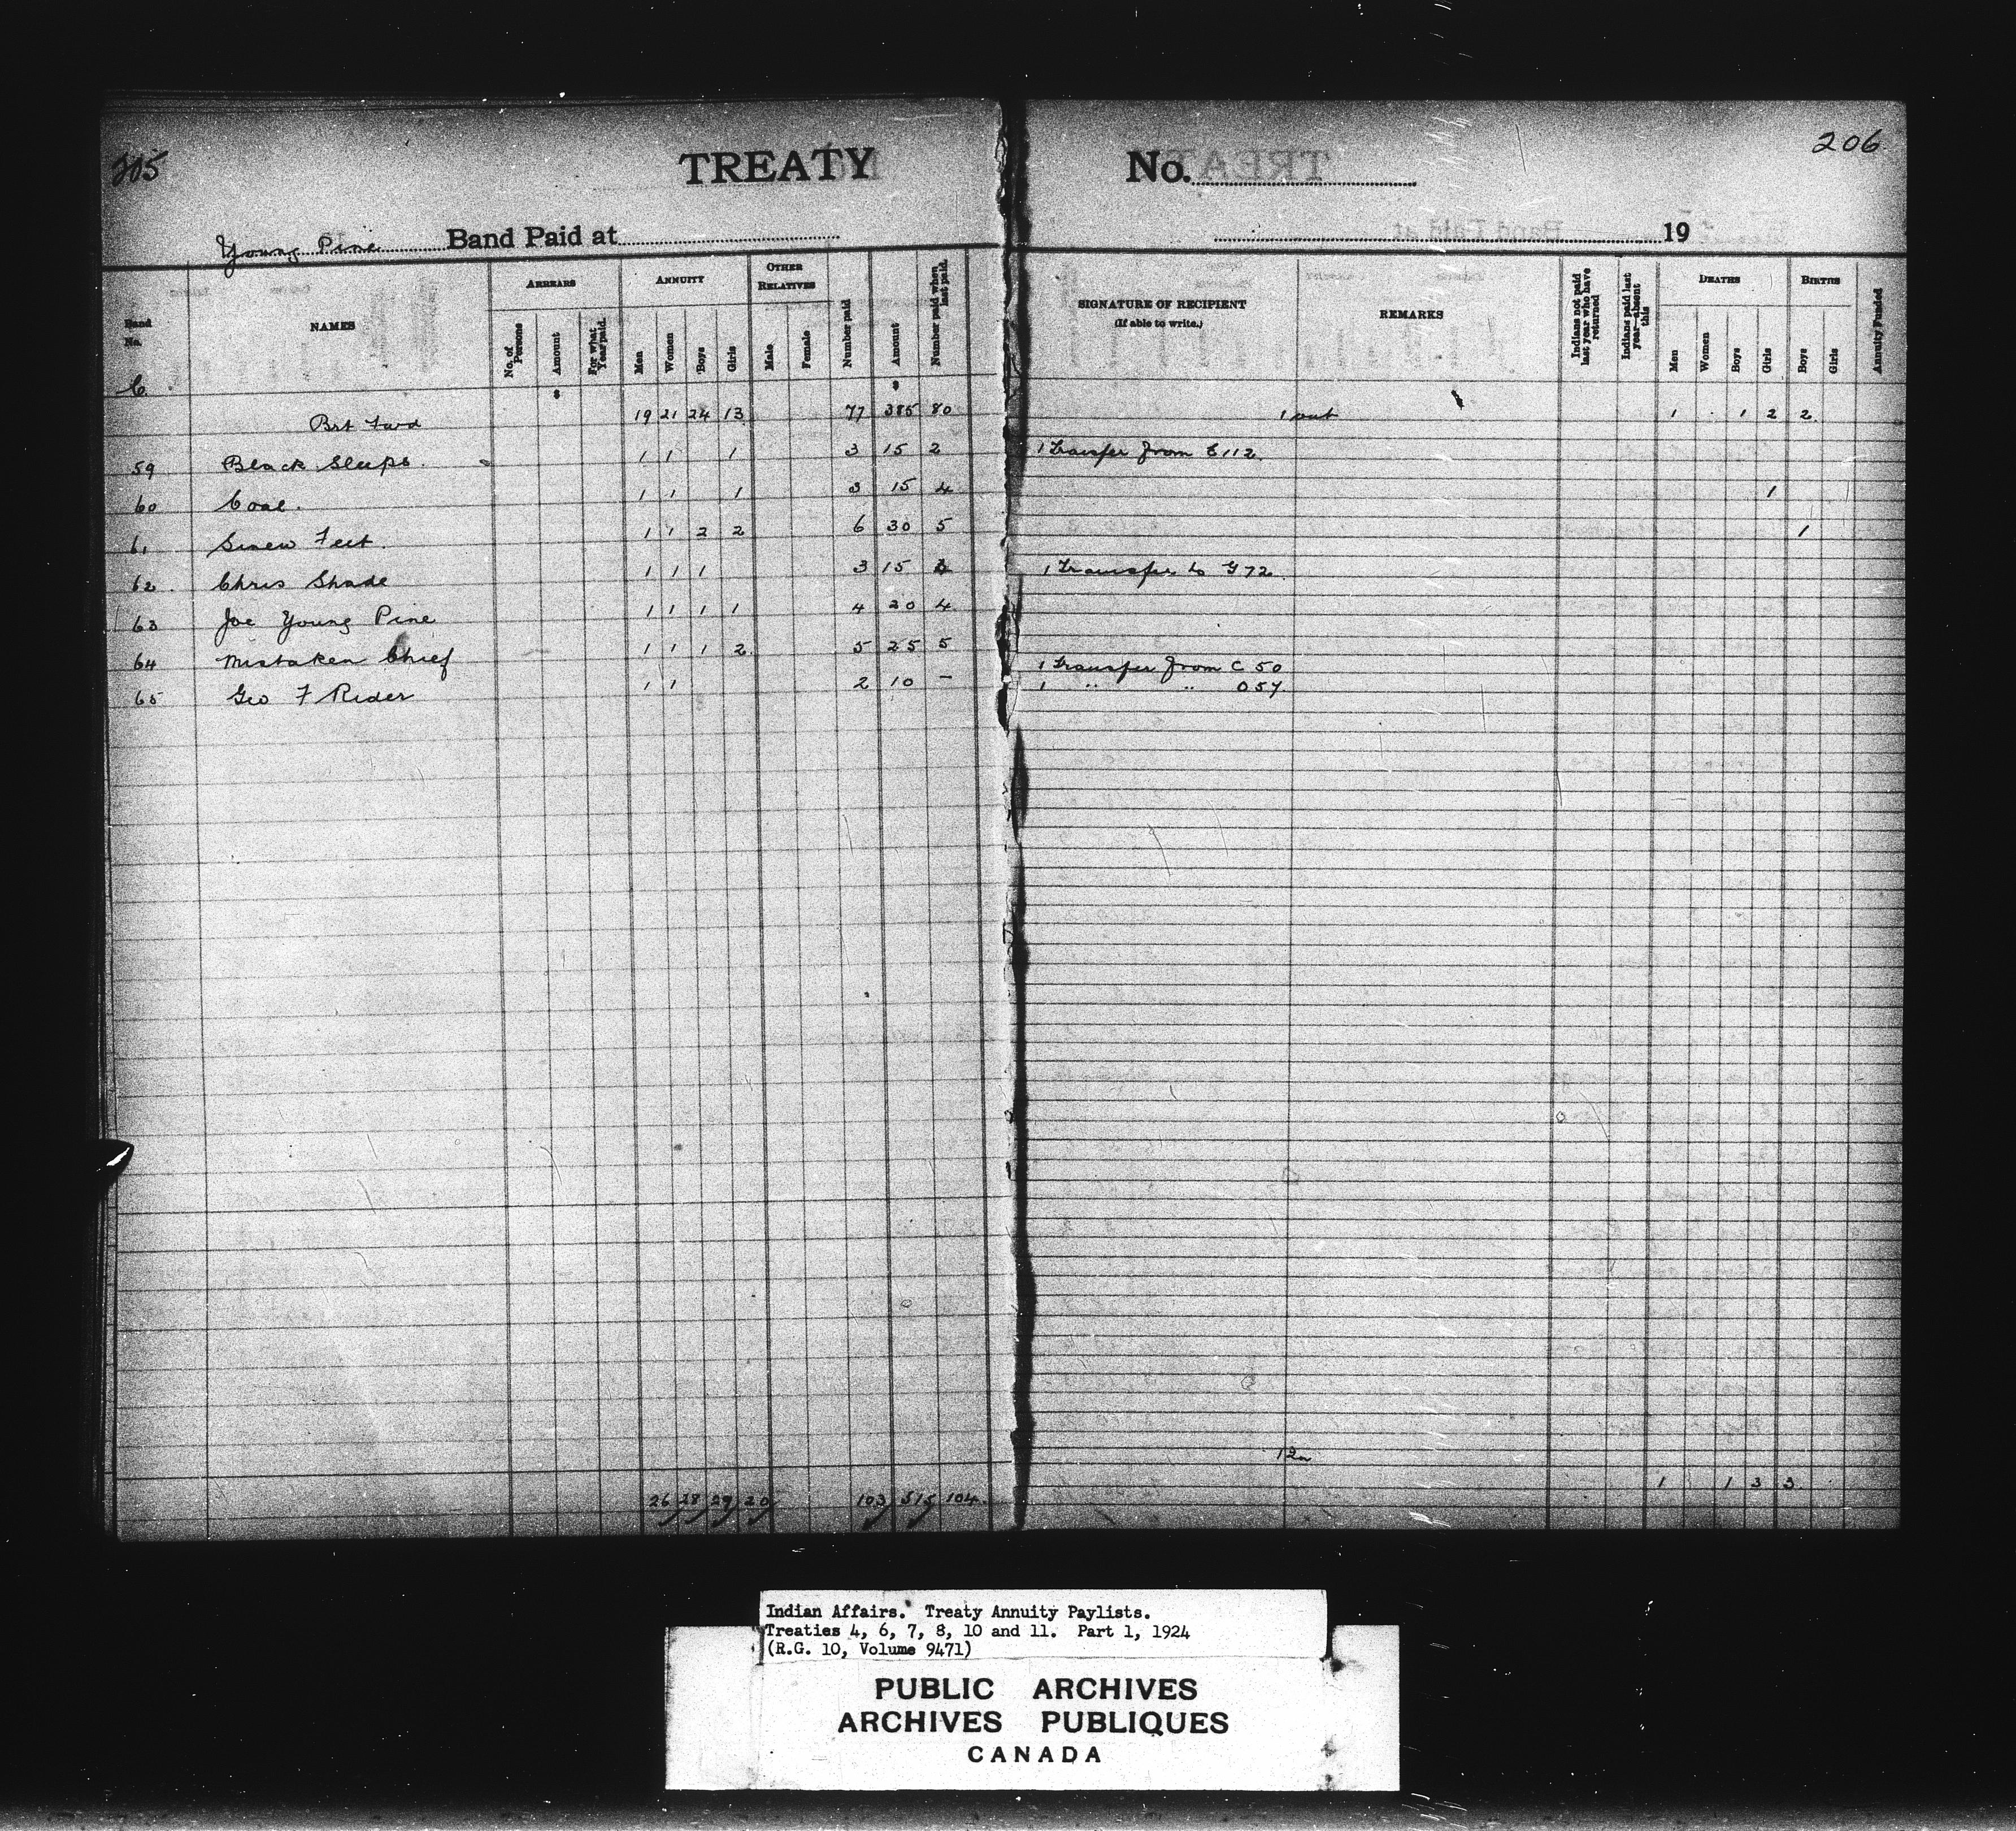 205
TREATY No.
206
Young Pine Band Paid at 19
Band No.
NAMES
ARREARS
No. of Persons
Amount
For what Year paid.
ANNUITY
Men
Women
Boys
Girls
OTHER RELATIVES
Male
Female
Number paid
Amount
Number paid when last paid.
SIGNATURE OF RECIPIENT
(If able to write.)
REMARKS
Indians not paid last year who have returned
Indians paid last year—absent this
DEATHS
Men
Women
Boys
Girls
BIRTHS
Boys
Girls
Annuity Funded
C. $ $
Brt Fwd 19 21 24 13 77 385 80 1 out 1 1 2 2
59 Black Sleeps. 1 1 1 3 15 2 1 Transfer from E112.
60 Coal. 1 1 1 3 15 4 1
61 Sinew Feet. 1 1 2 2 6 30 5 1
62. Chris Shade 1 1 1 3 15 4 1 Transfer to G 72.
63 Joe Young Pine 1 1 1 1 4 20 4
64 Mistaken Chief 1 1 1 2 5 25 5 1 Transfer from C 50
65 Geo F Rider 1 1 2 10 - 1 " " 057.
26 28 29 20 103 515 104. 1 1 3 3
Indian Affairs. Treaty Annuity Paylists.
Treaties 4, 6, 7, 8, 10 and 11. Part 1, 1924
(R.G. 10, Volume 9471)
PUBLIC ARCHIVES
ARCHIVES PUBLIQUES
CANADA